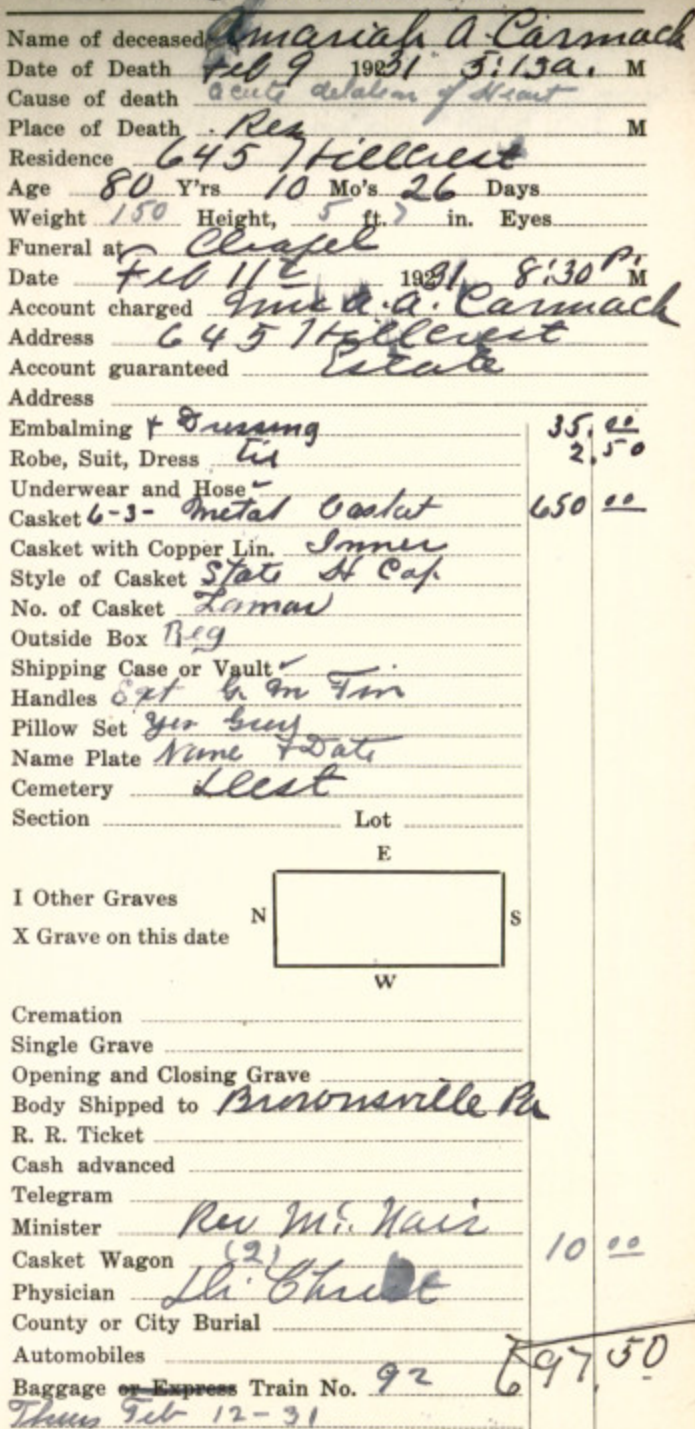 Name of deceased Amariah A. Carmack
Date of Death Feb 9 1931 5:15 a. M
Cause of death acute delation of Heart
Place of Death Res M
Residence 645 Hillcrest
Age 80 Y'rs 10 Mo's 26 Days
Weight 150 Height, 5 ft. 7 in. Eyes
Funeral at Chapel
Date Feb 11 1931 8:30 P. M
Account charged Mrs A. A. Carmack
Address 645 Hillcrest
Account guaranteed Estate
Address
Embalming + Dressing 35.00
Robe, Suit, Dress tie 2.50
Underwear and Hose ✓
Casket 6-3- Metal Casket 650 00
Casket with Copper Lin. Inner
Style of Casket State H Cop.
No. of Casket Lamar
Outside Box Reg
Shipping Case or Vault ✓
Handles Ext
Pillow Set yes Grey
Name Plate Name + Date
Cemetery
Section Lot
E
I Other Graves
N S
X Grave on this date
W
Cremation
Single Grave
Opening and Closing Grave
Body Shipped to Brownsville Pa
R. R. Ticket
Cash advanced
Telegram
Minister Rev Mc. Nair
Casket Wagon (2) 10 00
Physician Dr. Christ
County or City Burial
Automobiles
697.50
Baggage or Express Train No. 92
Thurs Feb 12-31